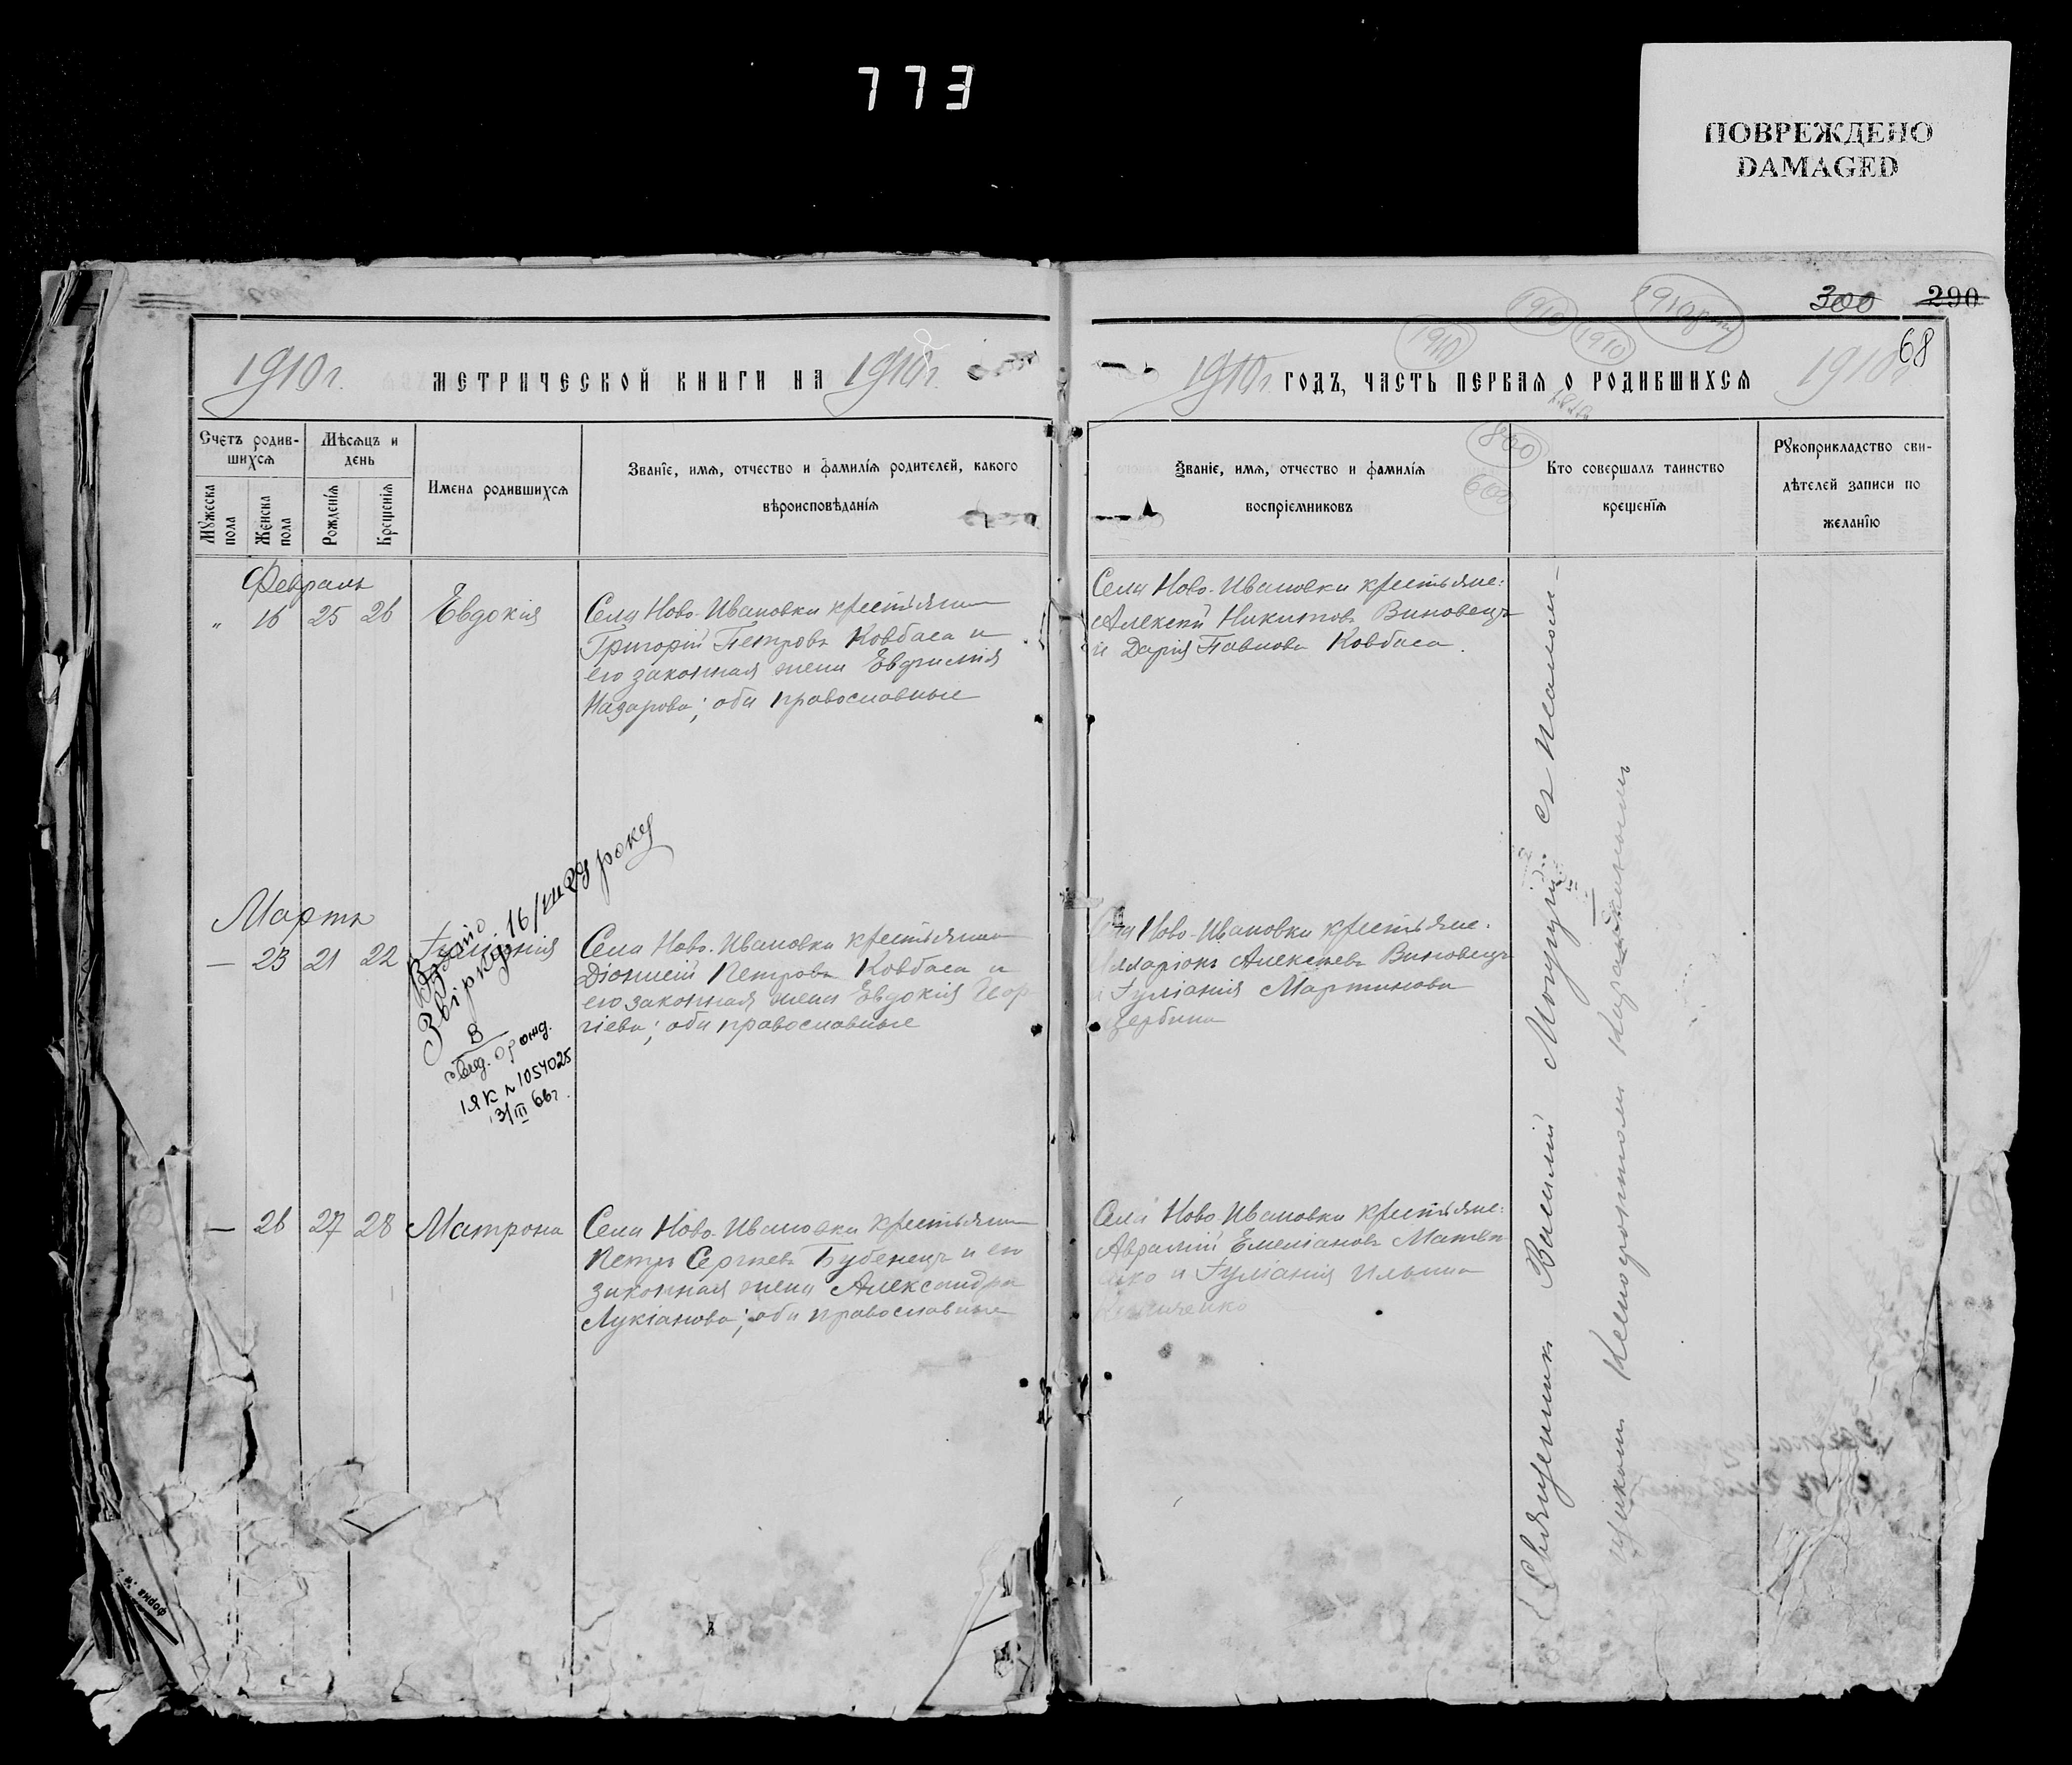 773
ПОВРЕЖДЕНО
DAMAGED
300 290
68
1910 г. МЕТРИЧЕСКОЙ КНИГИ НА 1910 г.
1910 г. ГОДЪ, ЧАСТЬ ПЕРВАЯ О РОДИВШИХСЯ 1910
Счетъ родив-
шихся
Мѣсяцъ и
день
Мужеска пола
Женска пола
Рожденія
Крещенія
Имена родившихся
Званіе, имя, отчество и фамилія родителей, какого
вѣроисповѣданія
Званіе, имя, отчество и фамилія
воспріемниковъ
Кто совершалъ таинство
крещенія
Рукоприкладство сви-
дѣтелей записи по
желанію
Февраль
" 16 25 26 Евдокія
Села Ново-Ивановки крестьянинъ
Григорій Петровъ Ковбаса и
его законная жена Евфимія
Назарова; оба православные
Села Ново-Ивановки крестьяне:
Алексѣй Никитовъ Виновецъ
и Дарія Павлова Ковбаса.
Мартъ
— 23 21 22 Іуліанія
Взято
Звірку 16/VIII 29 року
В
свид. о рожд.
I ЯК № 1054025
3/III 66г.
Села Ново-Ивановки крестьянинъ
Діонисій Петровъ Ковбаса и
его законная жена Евдокія Геор-
гіева; оба православные
Ново-Ивановки крестьяне:
Алексѣевъ Виновецъ
Іуліанія Мартинова
— 26 27 28 Матрона
Села Ново-Ивановки крестьянинъ
Петръ Сергѣевъ Бубенецъ и его
законная жена Александра
Лукіанова; оба православные
Села Ново-Ивановки крестьяне:
Аврамій Емеліановъ
и Іуліанія Ильина
Священникъ Василій съ псалом-
щикомъ